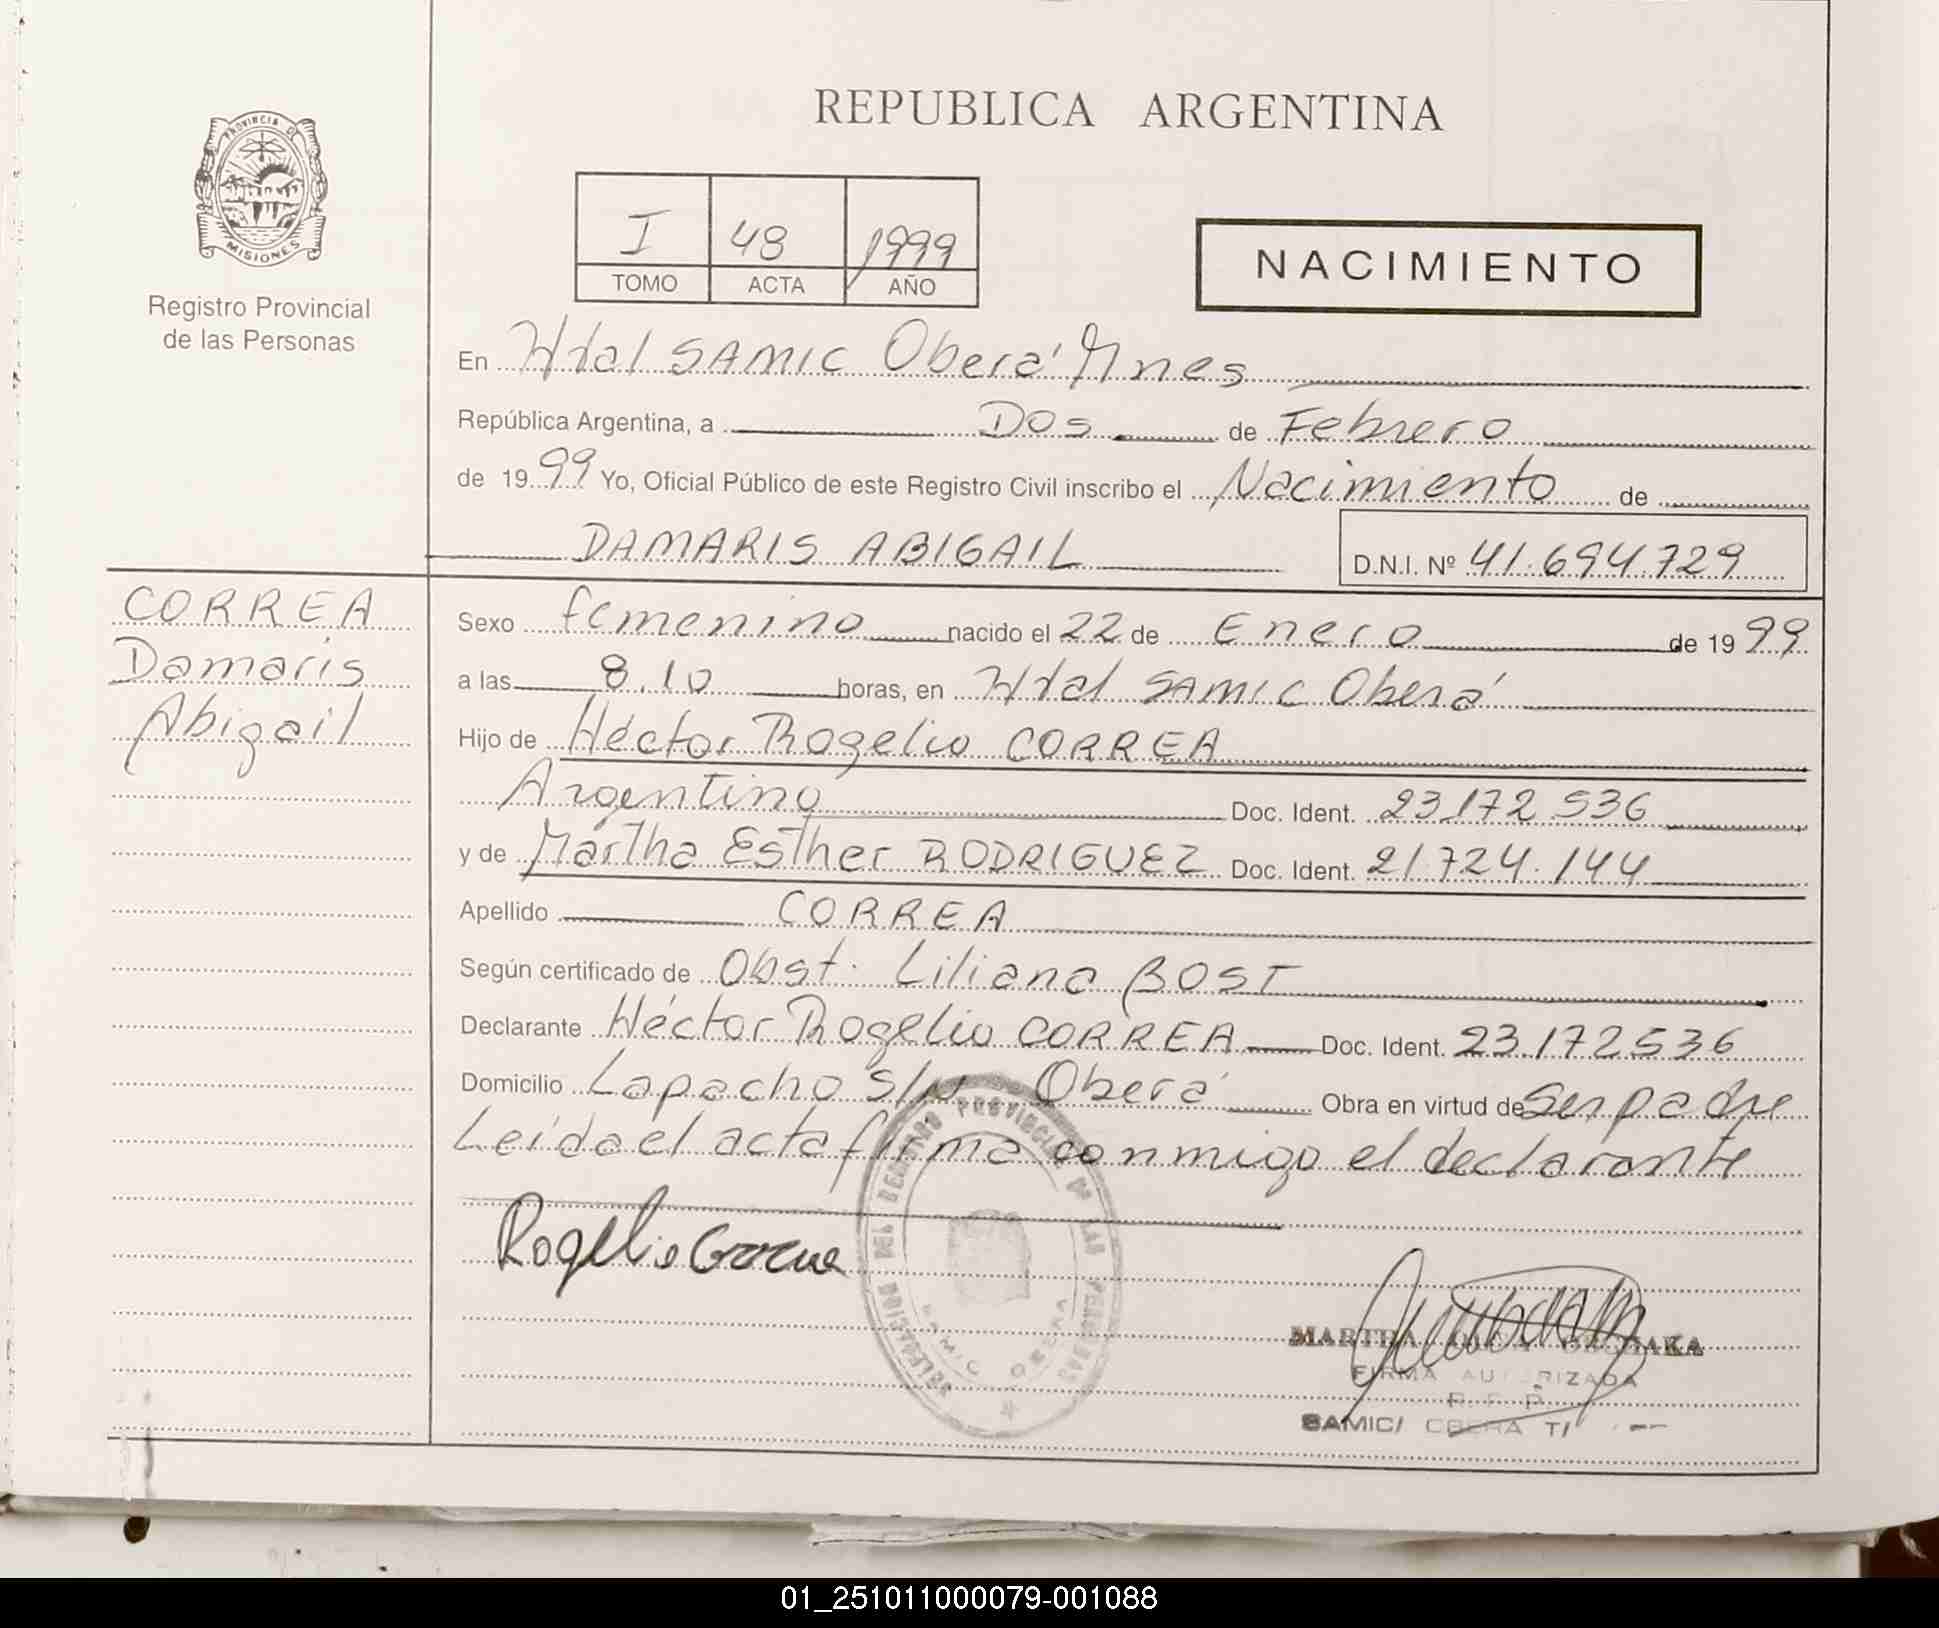 REPUBLICA ARGENTINA
PROVINCIA D
MISIONES
Registro Provincial
de las Personas
I 48 1999
TOMO ACTA AÑO
NACIMIENTO
En Htal SAMIC Oberá Mnes
República Argentina, a Dos de Febrero
de 1999 Yo, Oficial Público de este Registro Civil inscribo el Nacimiento de
DAMARIS ABIGAIL D.N.I. Nº 41.694.729
CORREA
Damaris
Abigail
Sexo femenino nacido el 22 de Enero de 1999
a las 8.10 horas, en Htal SAMIC Oberá
Hijo de Héctor Rogelio CORREA
Argentino Doc. Ident. 23.172.536
y de Martha Esther RODRIGUEZ Doc. Ident. 21.724.144
Apellido CORREA
Según certificado de Obst. Liliana BOST
Declarante Héctor Rogelio CORREA Doc. Ident. 23.172536
Domicilio Lapacho s/n Oberá Obra en virtud de ser padre
Leída el acta firma conmigo el declarante
Rogelio
DELEGACION DEL REGISTRO PROVINCIAL DE LAS PERSONAS
SAMIC OBERA
MARTHA
FIRMA AUTORIZADA
R. P. P.
SAMIC/ OBERA
01_251011000079-001088